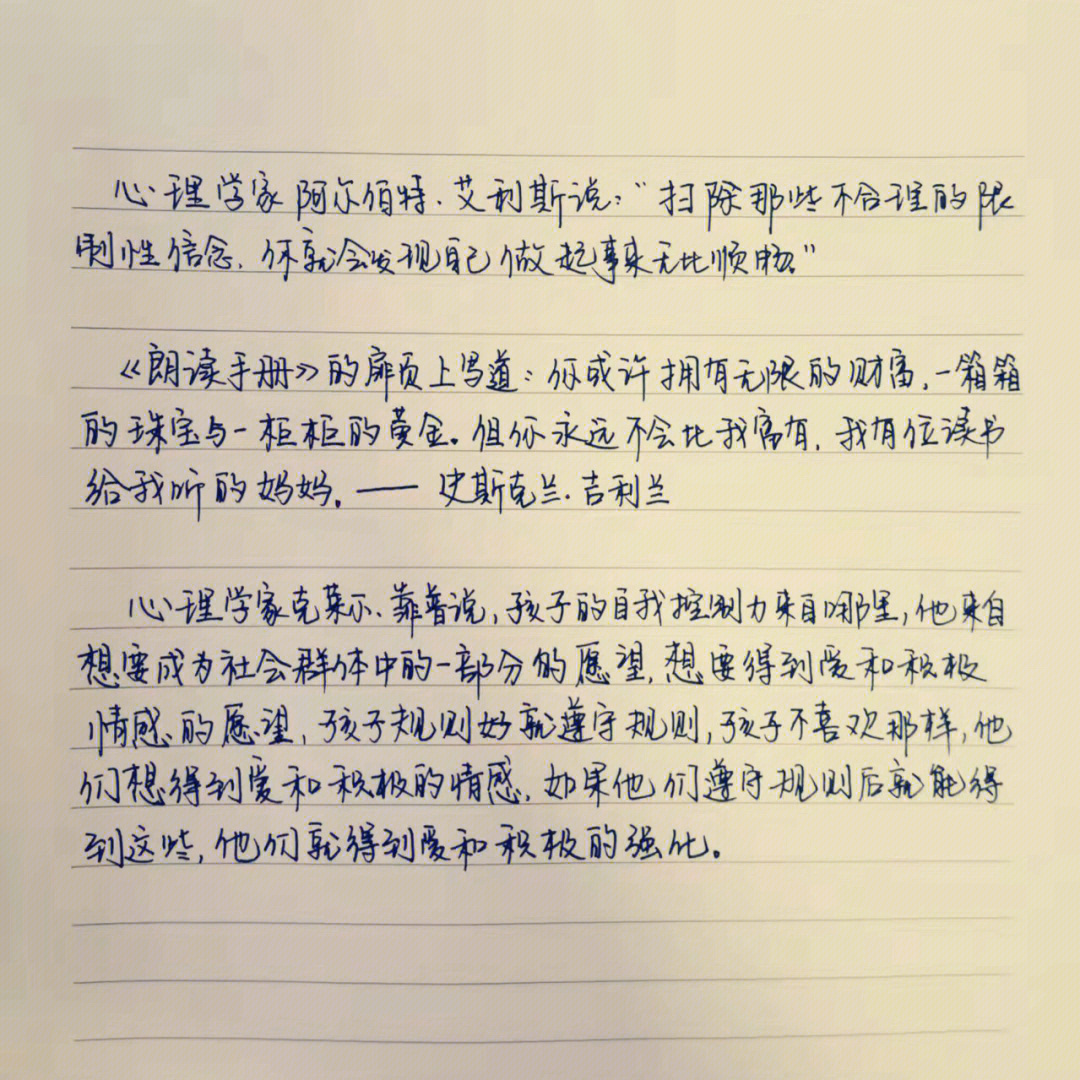 心理学家阿尔伯特.艾利斯说:“扫除那些不合理的限
制性信念,你就会发现自己做起事来无比顺畅。”
《朗读手册》的扉页上写道:你或许拥有无限的财富,一箱箱
的珠宝与一柜柜的黄金。但你永远不会比我富有,我有位读书
给我听的妈妈。——史斯克兰.吉利兰
心理学家克莱尔.靠普说,孩子的自我控制力来自哪里,他来自
想要成为社会群体中的一部分的愿望,想要得到爱和积极
情感的愿望,孩子规则好就遵守规则,孩子不喜欢那样,他
们想得到爱和积极的情感,如果他们遵守规则后就能得
到这些,他们就得到爱和积极的强化。